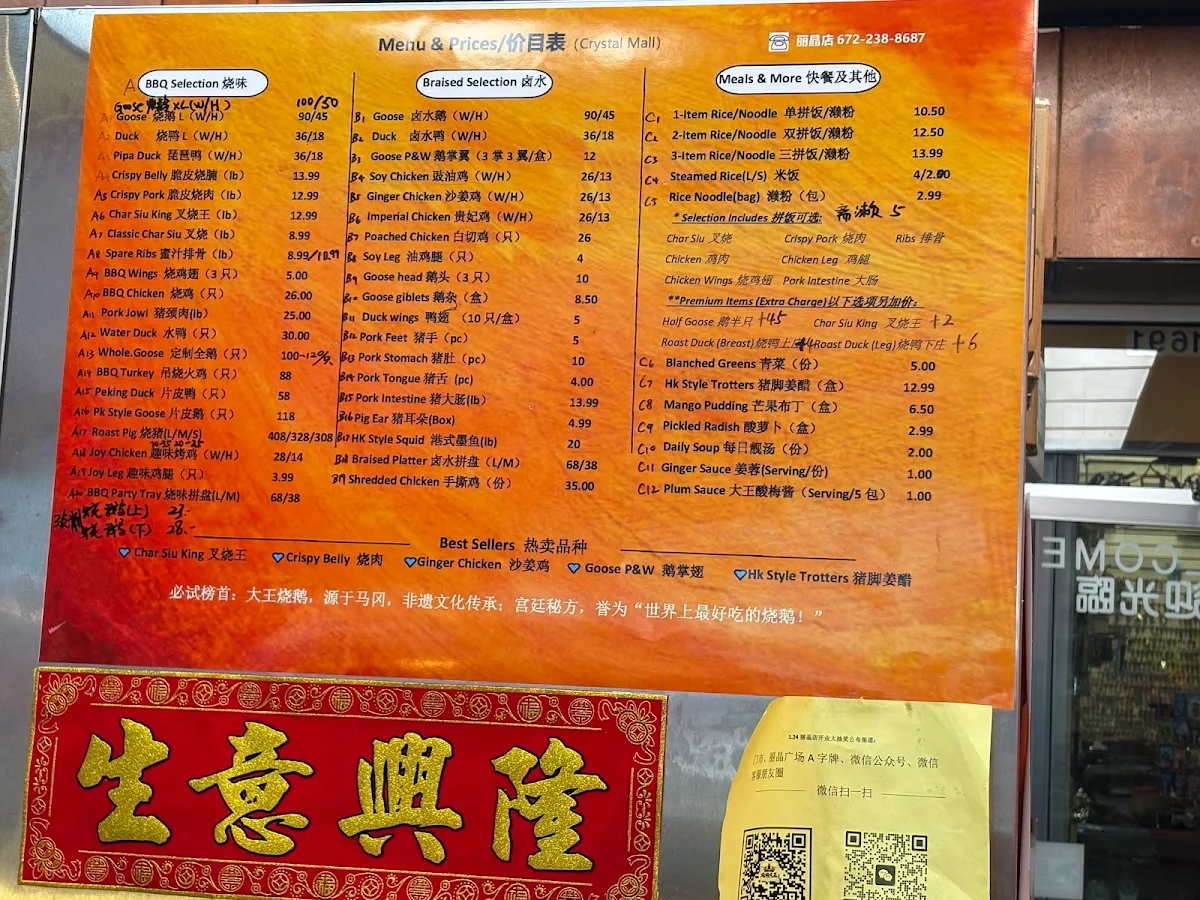 Menu & Prices/价目表 (Crystal Mall)
丽晶店 672-238-8687
BBQ Selection 烧味
Goose XL (W/H) 100/50
Goose 烧鹅 L (W/H) 90/45
Duck 烧鸭 L (W/H) 36/18
Pipa Duck 琵琶鸭 (W/H) 36/18
Crispy Belly 脆皮烧腩 (lb) 13.99
A5 Crispy Pork 脆皮烧肉 (lb) 12.99
A6 Char Siu King 叉烧王 (lb) 12.99
A7 Classic Char Siu 叉烧 (lb) 8.99
A8 Spare Ribs 蜜汁排骨 (lb) 8.99/10.99
A9 BBQ Wings 烧鸡翅 (3 只) 5.00
A10 BBQ Chicken 烧鸡 (只) 26.00
A11 Pork Jowl 猪颈肉(lb) 25.00
A12 Water Duck 水鸭 (只) 30.00
A13 Whole.Goose 定制全鹅 (只) 100~120/只
A14 BBQ Turkey 吊烧火鸡 (只) 88
A15 Peking Duck 片皮鸭 (只) 58
A16 Pk Style Goose 片皮鹅 (只) 118
A17 Roast Pig 烧猪(L/M/S) 408/328/308
A18 Joy Chicken 趣味烤鸡 (W/H) 28/14
A19 Joy Leg 趣味鸡腿 (只) 3.99
A20 BBQ Party Tray 烧味拼盘(L/M) 68/38
烧鹅(上) 23.-
烧鹅(下) 28.-
Braised Selection 卤水
B1 Goose 卤水鹅 (W/H) 90/45
B2 Duck 卤水鸭 (W/H) 36/18
B3 Goose P&W 鹅掌翼 (3 掌 3 翼/盒) 12
B4 Soy Chicken 豉油鸡 (W/H) 26/13
B5 Ginger Chicken 沙姜鸡 (W/H) 26/13
B6 Imperial Chicken 贵妃鸡 (W/H) 26/13
B7 Poached Chicken 白切鸡 (只) 26
B8 Soy Leg 油鸡腿 (只) 4
B9 Goose head 鹅头 (3 只) 10
B10 Goose giblets 鹅杂 (盒) 8.50
B11 Duck wings 鸭翅 (10 只/盒) 5
B12 Pork Feet 猪手 (pc) 5
B13 Pork Stomach 猪肚 (pc) 10
B14 Pork Tongue 猪舌 (pc) 4.00
B15 Pork Intestine 猪大肠(lb) 13.99
B16 Pig Ear 猪耳朵(Box) 4.99
B17 HK Style Squid 港式墨鱼(lb) 20
B18 Braised Platter 卤水拼盘 (L/M) 68/38
B19 Shredded Chicken 手撕鸡 (份) 35.00
Meals & More 快餐及其他
C1 1-Item Rice/Noodle 单拼饭/濑粉 10.50
C2 2-Item Rice/Noodle 双拼饭/濑粉 12.50
C3 3-Item Rice/Noodle 三拼饭/濑粉 13.99
C4 Steamed Rice(L/S) 米饭 4/2.00
C5 Rice Noodle(bag) 濑粉 (包) 2.99
* Selection Includes 拼饭可选: 斋濑 5
Char Siu 叉烧 Crispy Pork 烧肉 Ribs 排骨
Chicken 鸡肉 Chicken Leg 鸡腿
Chicken Wings 烧鸡翅 Pork Intestine 大肠
**Premium Items (Extra Charge)以下选项另加价:
Half Goose 鹅半只 +45 Char Siu King 叉烧王 +2
Roast Duck (Breast)烧鸭上庄 +4 Roast Duck (Leg)烧鸭下庄 +6
C6 Blanched Greens 青菜 (份) 5.00
C7 Hk Style Trotters 猪脚姜醋 (盒) 12.99
C8 Mango Pudding 芒果布丁 (盒) 6.50
C9 Pickled Radish 酸萝卜 (盒) 2.99
C10 Daily Soup 每日靓汤 (份) 2.00
C11 Ginger Sauce 姜蓉(Serving/份) 1.00
C12 Plum Sauce 大王酸梅酱 (Serving/5 包) 1.00
Best Sellers 热卖品种
Char Siu King 叉烧王 Crispy Belly 烧肉 Ginger Chicken 沙姜鸡 Goose P&W 鹅掌翅 Hk Style Trotters 猪脚姜醋
必试榜首：大王烧鹅，源于马冈，非遗文化传承；宫廷秘方，誉为“世界上最好吃的烧鹅！”
生意興隆
1.24 丽晶店开业大抽奖公布渠道:
门市、丽晶广场 A 字牌、微信公众号、微信
客服朋友圈
微信扫一扫
COME
迎光臨